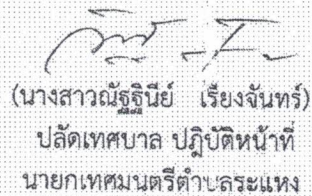 (นางสาวณัฐฐินีย์ เรียงจันทร์)
ปลัดเทศบาล ปฏิบัติหน้าที่
นายกเทศมนตรีตำบลระแหง